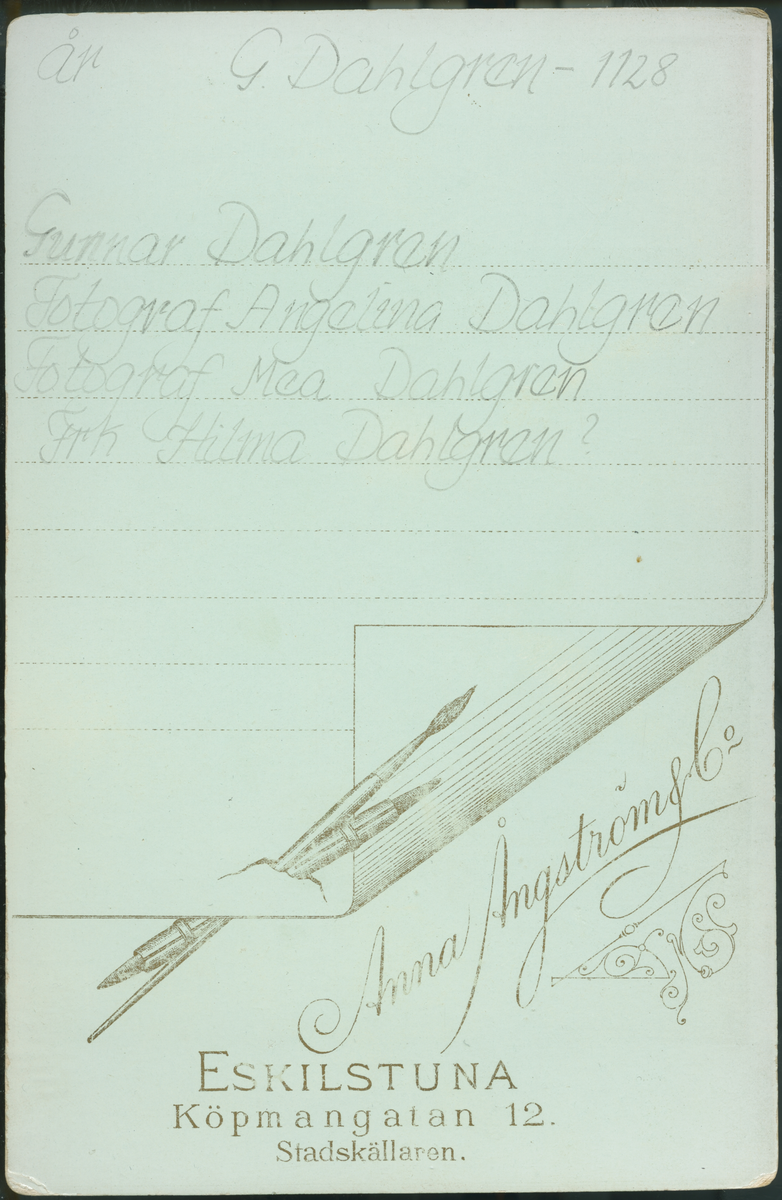 år G. Dahlgren - 1128
Gunnar Dahlgren
Fotograf Angelina Dahlgren
Fotograf Mea Dahlgren
Frk Hilma Dahlgren?
Anna Ångström & Co
ESKILSTUNA
Köpmangatan 12.
Stadskällaren.